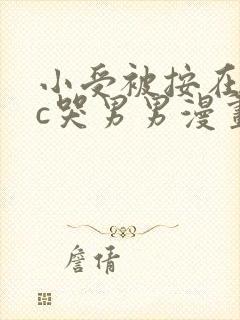 小受被按在
c哭男男漫畫
詹倩